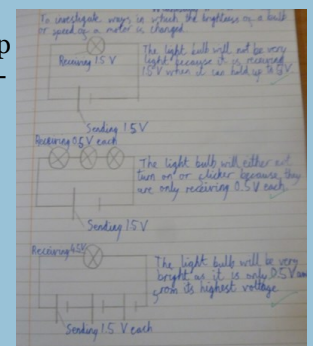 To investigate ways in which the brightness of a bulb
or speed of a motor is changed.
p
Receiving 1.5 V
The light bulb will not be very
light because it is received
1.5 V when it can hold up to V.
Sending 1.5 V
Receiving 0.5 V each
The light bulb will either not
turn on or flicker because they
are only receiving 0.5 V each.
Sending 1.5 V
Receiving 4.5 V
The light bulb will be very
bright as it is only 0.5 V
from its highest voltage.
Sending 1.5 V each